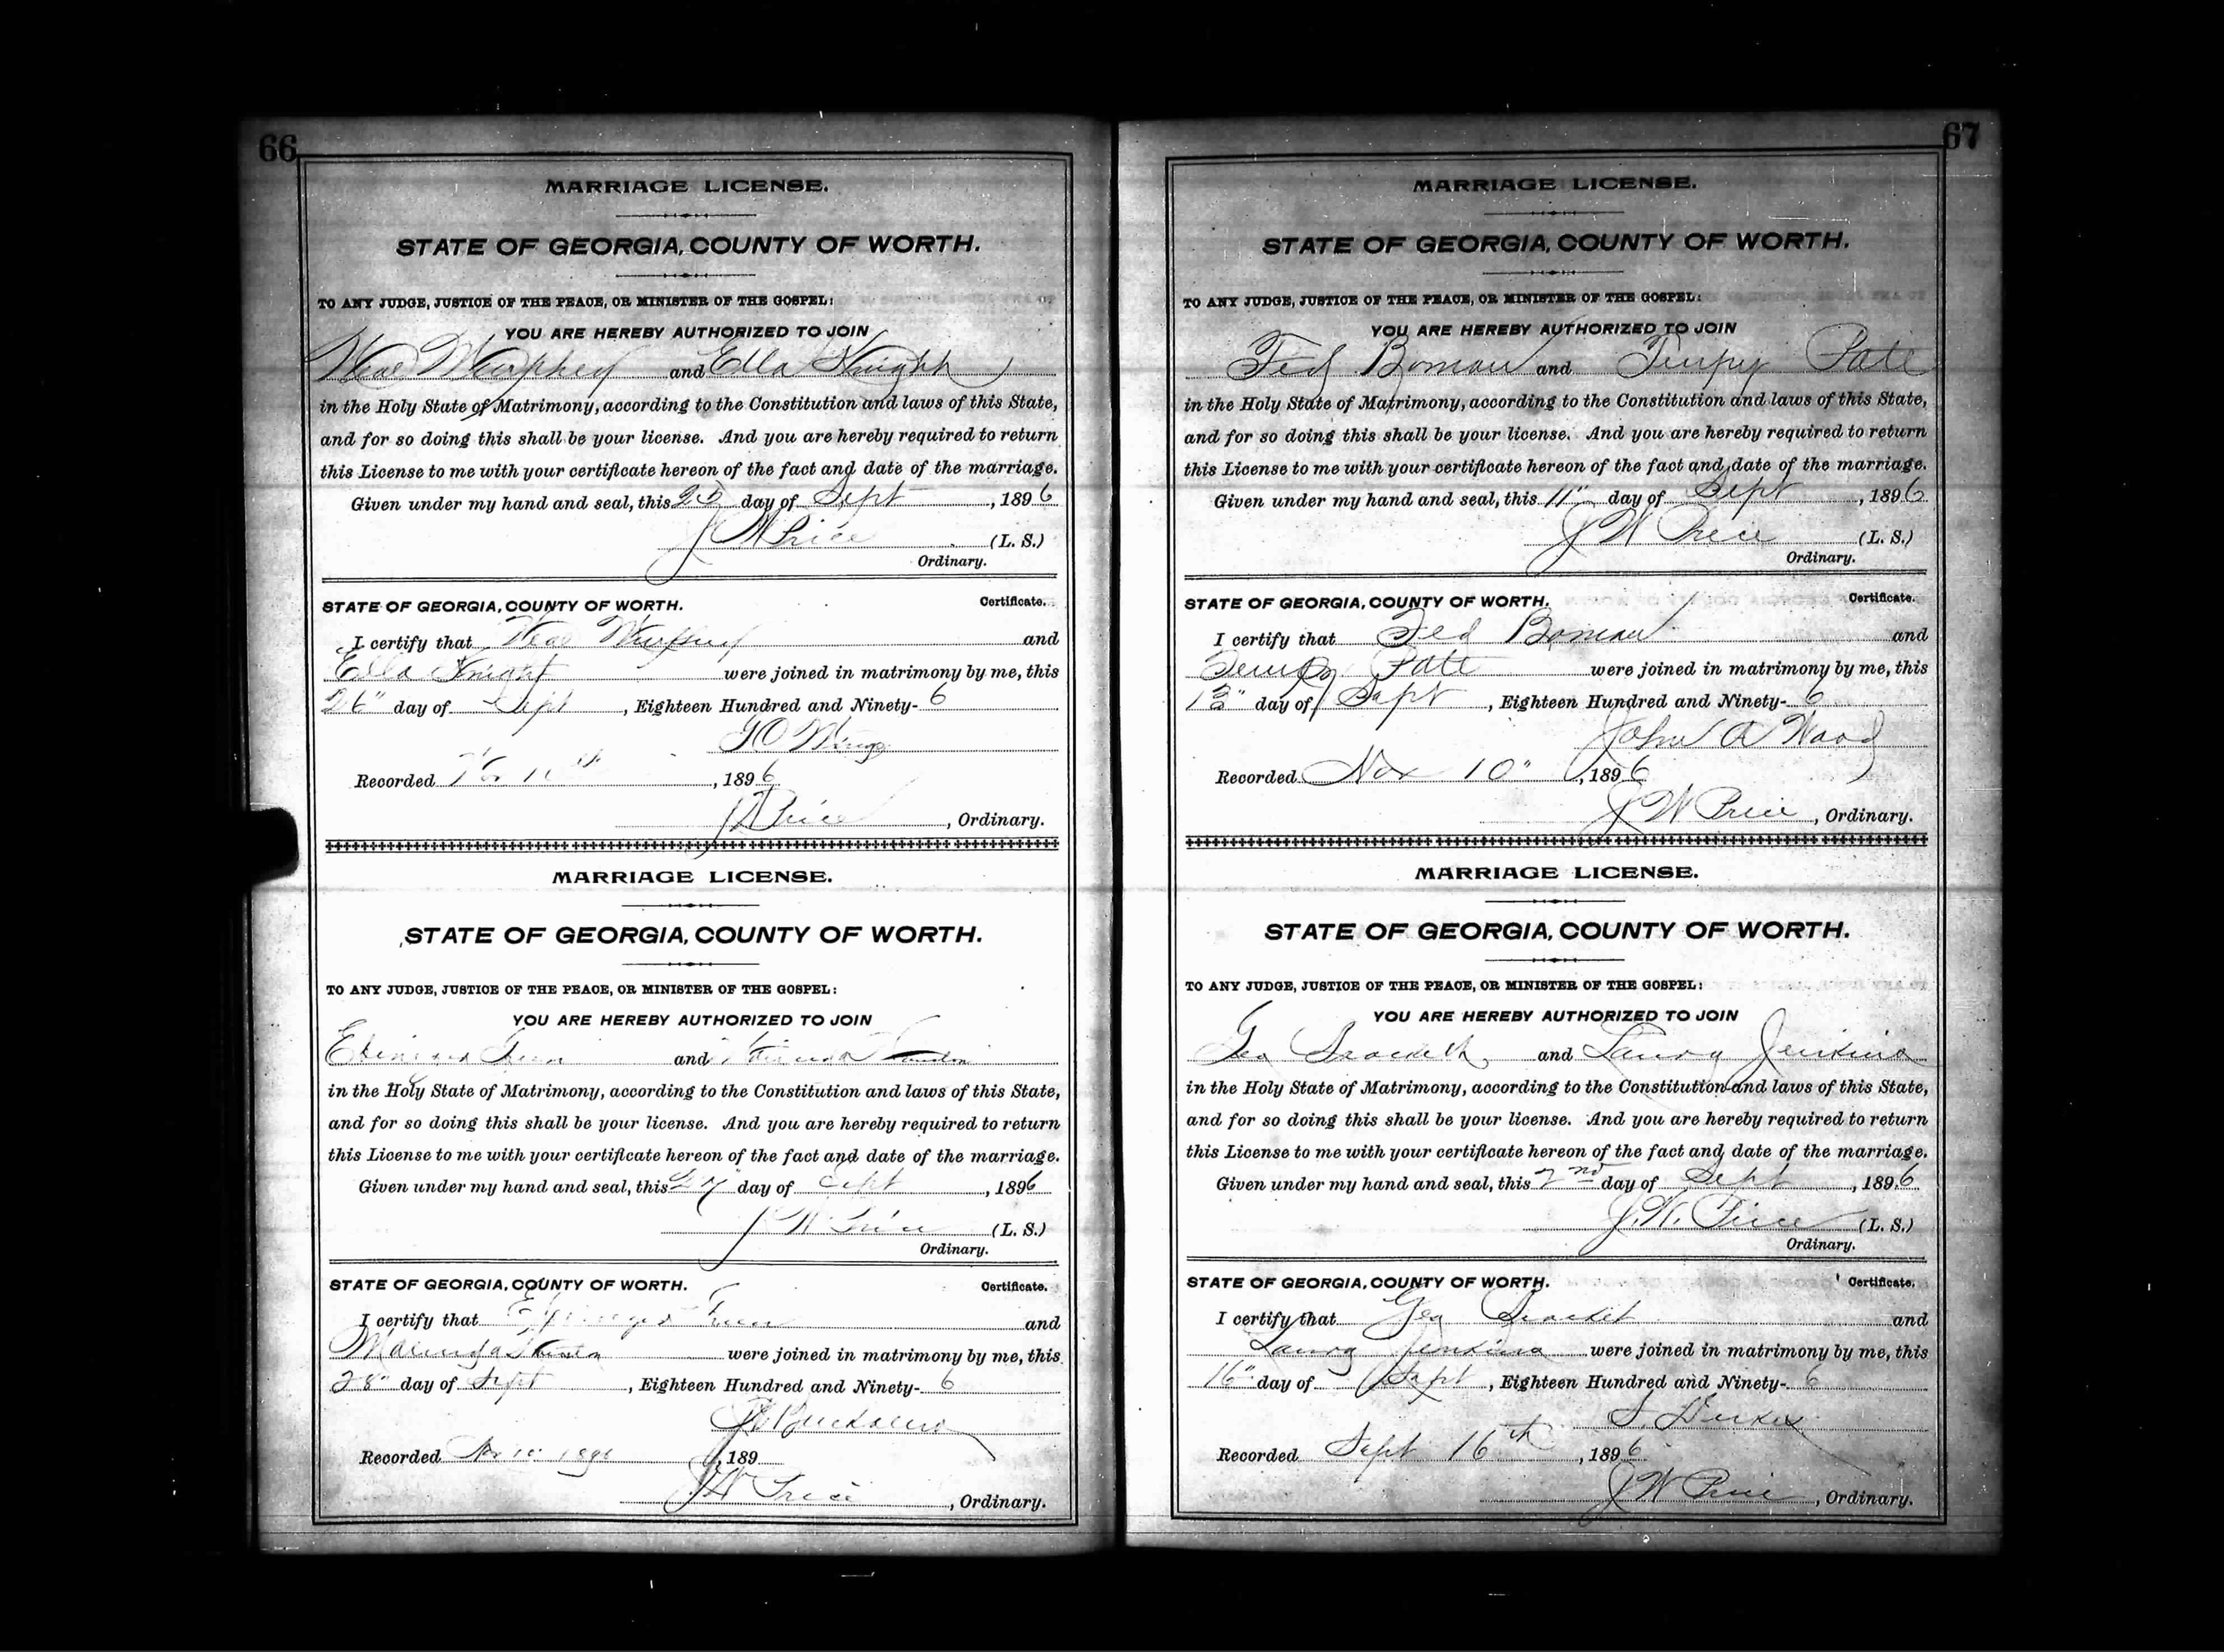 66
MARRIAGE LICENSE.
STATE OF GEORGIA, COUNTY OF WORTH.
TO ANY JUDGE, JUSTICE OF THE PEACE, OR MINISTER OF THE GOSPEL:
YOU ARE HEREBY AUTHORIZED TO JOIN
Murphey and Ella Knight
in the Holy State of Matrimony, according to the Constitution and laws of this State,
and for so doing this shall be your license. And you are hereby required to return
this License to me with your certificate hereon of the fact and date of the marriage.
Given under my hand and seal, this 25 day of Sept, 1896
J W Price (L. S.)
Ordinary.
STATE OF GEORGIA, COUNTY OF WORTH. Certificate.
I certify that and
Ella Knight were joined in matrimony by me, this
26" day of Sept, Eighteen Hundred and Ninety-6
Recorded, 1896
J W Price, Ordinary.
MARRIAGE LICENSE.
STATE OF GEORGIA, COUNTY OF WORTH.
TO ANY JUDGE, JUSTICE OF THE PEACE, OR MINISTER OF THE GOSPEL:
YOU ARE HEREBY AUTHORIZED TO JOIN
and
in the Holy State of Matrimony, according to the Constitution and laws of this State,
and for so doing this shall be your license. And you are hereby required to return
this License to me with your certificate hereon of the fact and date of the marriage.
Given under my hand and seal, this 27 day of Sept, 1896
J W Price (L. S.)
Ordinary.
STATE OF GEORGIA, COUNTY OF WORTH. Certificate.
I certify that and
were joined in matrimony by me, this
28" day of Sept, Eighteen Hundred and Ninety-6
Recorded Nov 10" 1896, 189
J W Price, Ordinary.
67
MARRIAGE LICENSE.
STATE OF GEORGIA, COUNTY OF WORTH.
TO ANY JUDGE, JUSTICE OF THE PEACE, OR MINISTER OF THE GOSPEL:
YOU ARE HEREBY AUTHORIZED TO JOIN
Fed Boman and Pate
in the Holy State of Matrimony, according to the Constitution and laws of this State,
and for so doing this shall be your license. And you are hereby required to return
this License to me with your certificate hereon of the fact and date of the marriage.
Given under my hand and seal, this 11" day of Sept, 1896
J W Price (L. S.)
Ordinary.
STATE OF GEORGIA, COUNTY OF WORTH. Certificate.
I certify that Fed Boman and
Pate were joined in matrimony by me, this
13" day of Sept, Eighteen Hundred and Ninety-6
John A Wood
Recorded Nov 10", 1896
J W Price, Ordinary.
MARRIAGE LICENSE.
STATE OF GEORGIA, COUNTY OF WORTH.
TO ANY JUDGE, JUSTICE OF THE PEACE, OR MINISTER OF THE GOSPEL:
YOU ARE HEREBY AUTHORIZED TO JOIN
Geo and Jenkins
in the Holy State of Matrimony, according to the Constitution and laws of this State,
and for so doing this shall be your license. And you are hereby required to return
this License to me with your certificate hereon of the fact and date of the marriage.
Given under my hand and seal, this 2nd day of Sept, 1896
J. W. Price (L. S.)
Ordinary.
STATE OF GEORGIA, COUNTY OF WORTH. Certificate.
I certify that Geo and
Jenkins were joined in matrimony by me, this
16" day of Sept, Eighteen Hundred and Ninety-6
Recorded Sept 16th, 1896
J W Price, Ordinary.